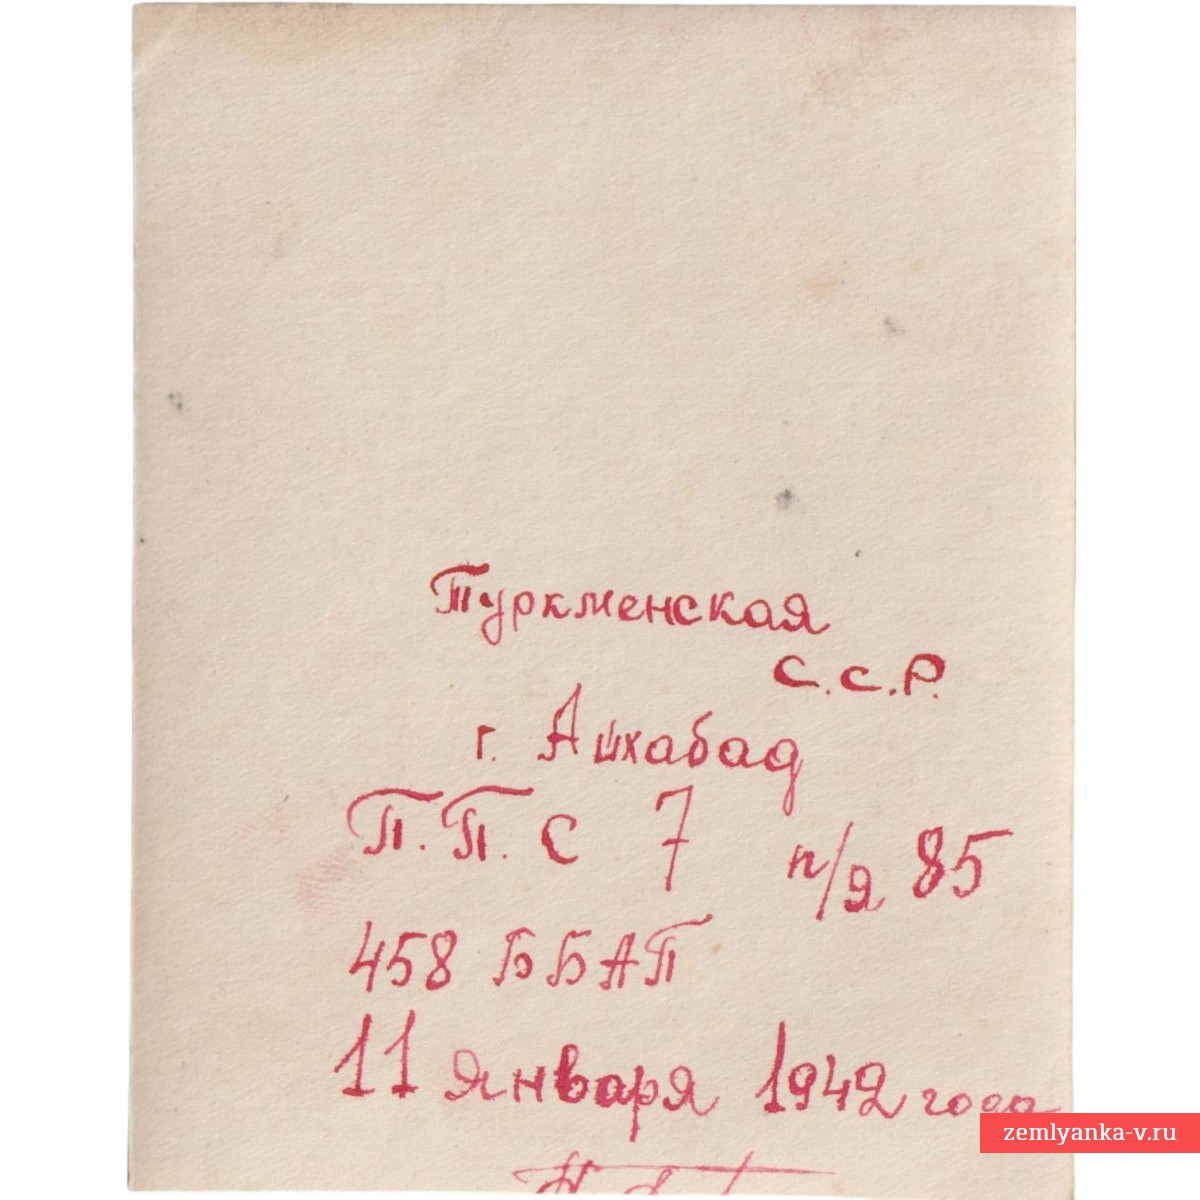 Туркменская
С.С.Р.
г. Ашхабад
П.П.С 7 п/я 85
458 ББАП
11 января 1942 года
zemlyanka-v.ru